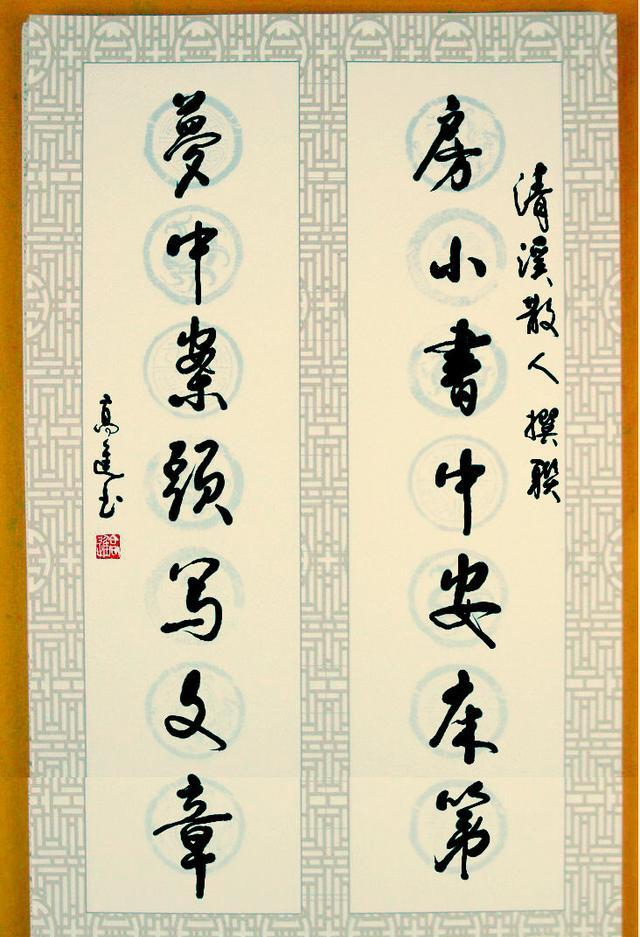 清溪散人撰聯
房小書中安床第
夢中案頭写文章
高進书